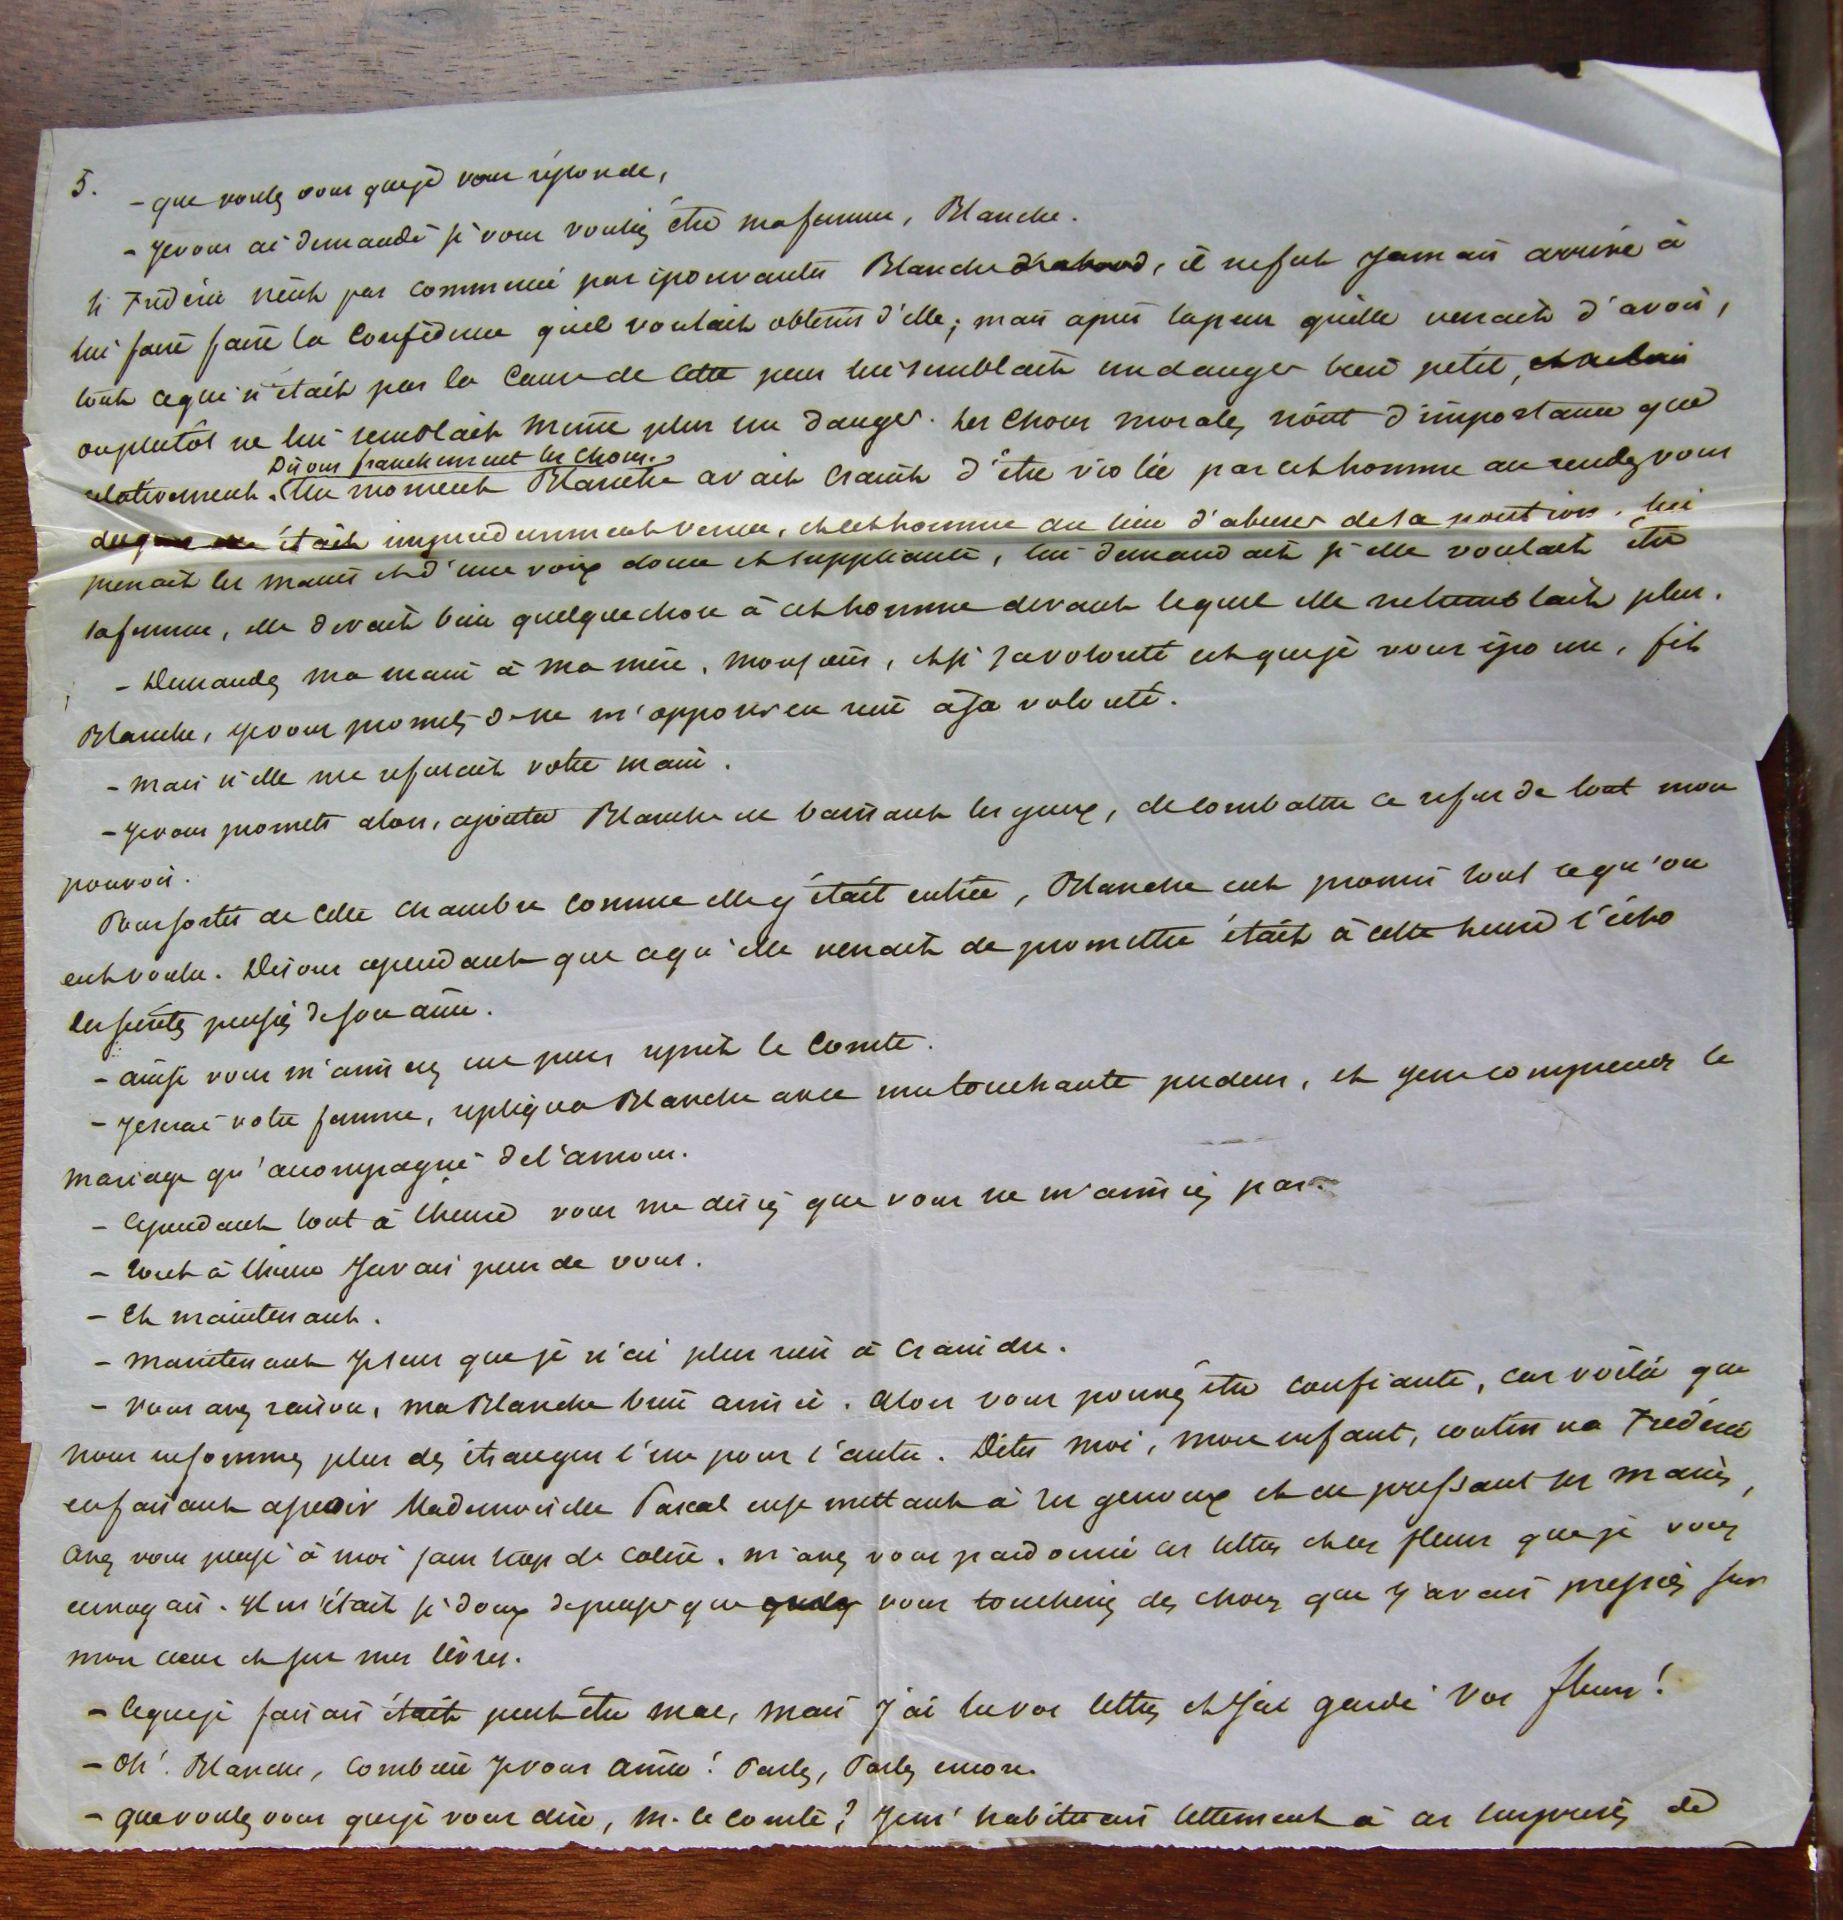 5. - que voulez vous que je vous réponde,
- Je vous ai demandé si vous vouliez être ma femme, Blanche.
Si Frédéric n'eût pas commencé par épouvanter Blanche d'abord, il ne fut jamais arrivé à
lui faire faire la confidence qu'il voulait obtenir d'elle; mais après la peur qu'elle venait d'avoir,
tout ce qui n'était pas la cause de cette peur lui semblait un danger bien petit,
ou plutôt ne lui semblait même plus un danger. Les choses morales n'ont d'importance que
Disons franchement les choses.
relativement. Un moment Blanche avait craint d'être violée par cet homme au rendez vous
duquel elle était imprudemment venue, et cet homme au lieu d'abuser de sa position, lui
prenait les mains et d'une voix douce et suppliante, lui demandait si elle voulait être
sa femme, elle devait bien quelque chose à cet homme devant lequel elle ne tremblait plus.
- Demandez ma main à ma mère, monsieur, et si sa volonté est que je vous épouse, fit
Blanche, je vous promets de ne m'opposer en rien à sa volonté.
- Mais si elle me refusait votre main.
- Je vous promets alors, ajouta Blanche en baissant les yeux, de combattre ce refus de tout mon
pouvoir.
Pour sortir de cette chambre comme elle y était entrée, Blanche eut promis tout ce qu'on
eut voulu. Disons cependant que ce qu'elle venait de promettre était à cette heure l'écho
des secrètes pensées de son âme.
- Ainsi vous m'aimerez un peu reprit le Comte.
- Je serai votre femme, répliqua Blanche avec une touchante pudeur, et je ne comprends le
mariage qu'accompagné de l'amour.
- Cependant tout à l'heure vous me disiez que vous ne m'aimiez pas.
- Tout à l'heure J'avais peur de vous.
- Et maintenant.
- Maintenant Je sens que je n'ai plus rien à craindre.
- Vous avez raison, ma Blanche bien aimée. Alors vous pouvez être confiante, car voilà que
nous ne sommes plus des étrangers l'un pour l'autre. Dites moi, mon enfant, continua Frédéric
en faisant asseoir Mademoiselle Pascal en se mettant à ses genoux et en pressant ses mains,
avez vous pensé à moi sans trop de colère, m'avez vous pardonné ces lettres et ces fleurs que je vous
envoyais. Il m'était si doux de penser que vous toucheriez des choses que j'avais pressées sur
mon cœur et sur mes lèvres.
- Ce que je faisais était peut être mal, mais j'ai lu vos lettres et j'ai gardé vos fleurs!
- Oh! Blanche, combien je vous aime! Parlez, Parlez encore.
- Que voulez vous que je vous dise, M. le Comte? Je m'habituais tellement à ces surprises de